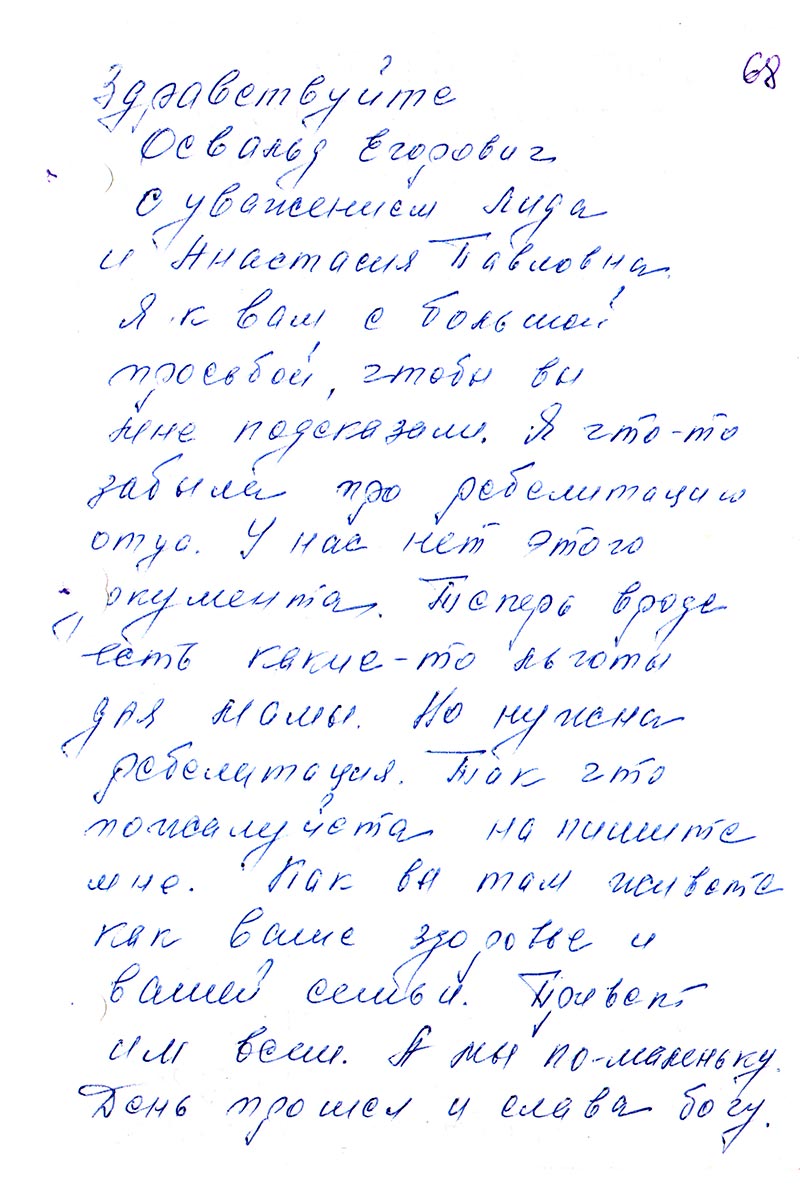 68
Здравствуйте
Освальд Егорович
С уважением Лида
и Анастасия Павловна.
Я к вам с большой
просьбой, чтобы вы
мне подсказали. Я что-то
забыла про ребелитацию
отца. У нас нет этого
документа. Теперь вроде
есть какие-то льготы
для мамы. Но нужна
ребелитация. Так что
пожалуйста напишите
мне. Как вы там живете
как ваше здоровье и
вашей семьи. Привет
им всем. А мы по-маленьку.
День прошел и слава богу.